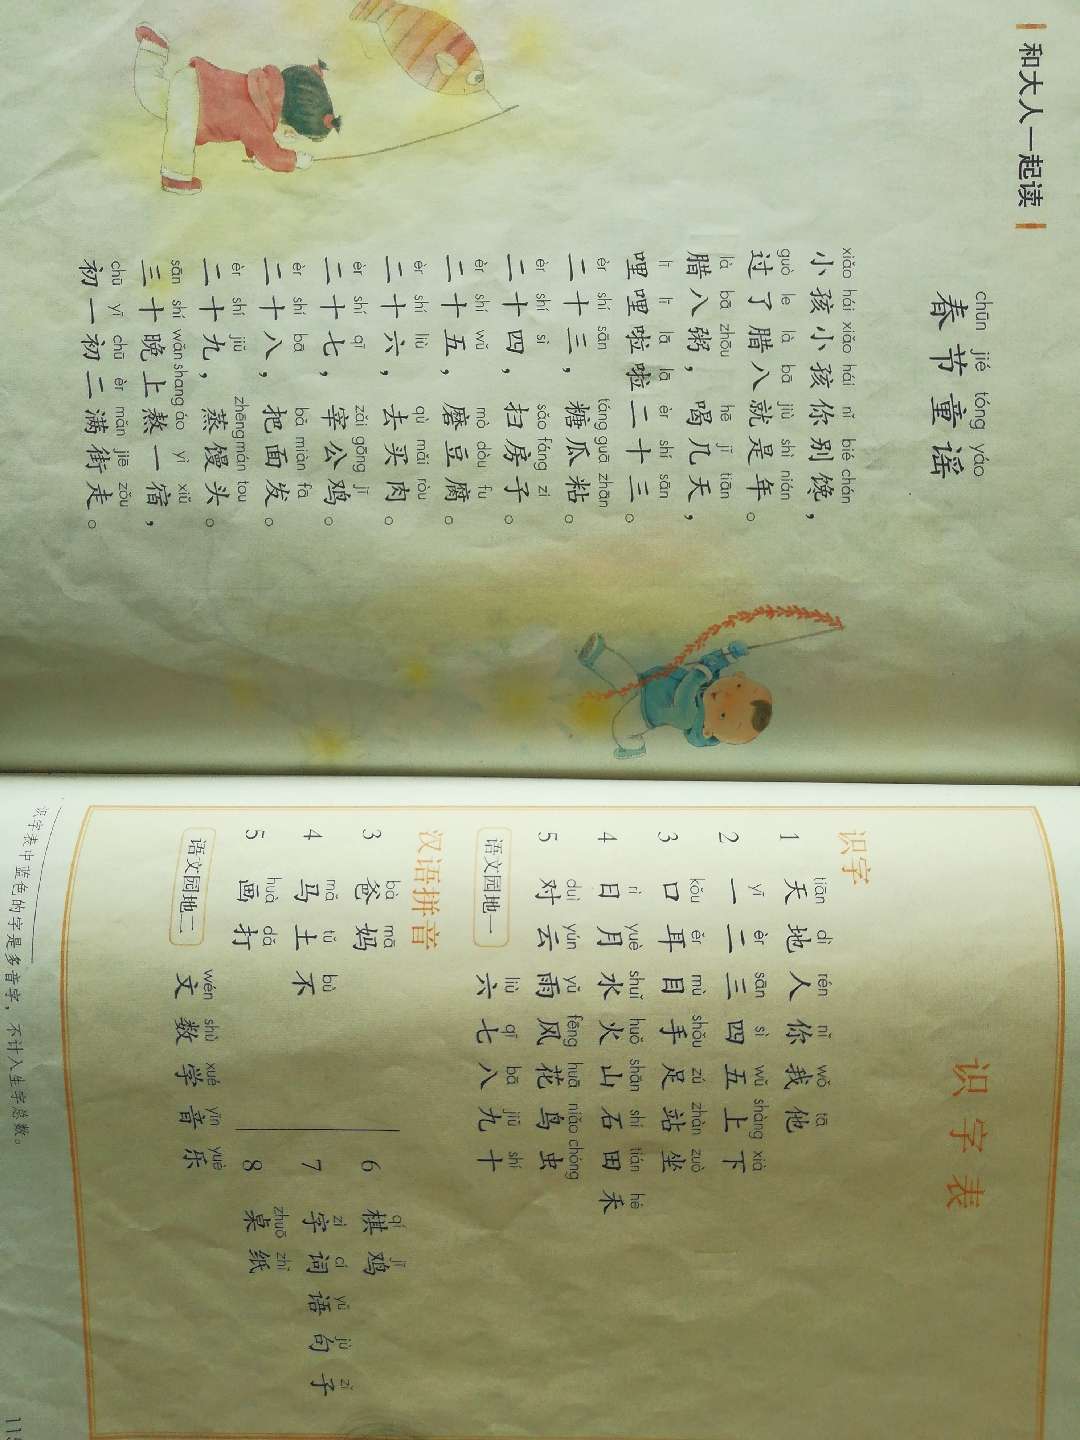 和大人一起读
chūn jié tóng yáo
春节童谣
xiǎo hái xiǎo hái nǐ bié chán
小孩小孩你别馋，
guò le là bā jiù shì nián
过了腊八就是年。
là bā zhōu hē jǐ tiān
腊八粥，喝几天，
lī lī lā lā èr shí sān
哩哩啦啦二十三。
èr shí sān táng guā zhān
二十三，糖瓜粘。
èr shí sì sǎo fáng zi
二十四，扫房子。
èr shí wǔ mò dòu fu
二十五，磨豆腐。
èr shí liù qù mǎi ròu
二十六，去买肉。
èr shí qī zǎi gōng jī
二十七，宰公鸡。
èr shí bā bǎ miàn fā
二十八，把面发。
èr shí jiǔ zhēng mán tou
二十九，蒸馒头。
sān shí wǎn shang áo yì xiǔ
三十晚上熬一宿，
chū yī chū èr mǎn jiē zǒu
初一初二满街走。
识字表
识字
tiān dì rén nǐ wǒ tā
1 天地人你我他
yī èr sān sì wǔ shàng xià
2 一二三四五上下
kǒu ěr mù shǒu zú zhàn zuò
3 口耳目手足站坐
rì yuè shuǐ huǒ shān shí tián hé
4 日月水火山石田禾
duì yún yǔ fēng huā niǎo chóng
5 对云雨风花鸟虫
liù qī bā jiǔ shí
语文园地一 六七八九十
汉语拼音
bà mā
3 爸妈
mǎ tǔ bù
4 马土不
huà dǎ
5 画打
qí jī
6 棋鸡
zì cí yǔ jù zǐ
7 字词语句子
zhuō zhǐ
8 桌纸
wén shù xué yīn yuè
语文园地二 文数学音乐
识字表中蓝色的字是多音字，不计入生字总数。